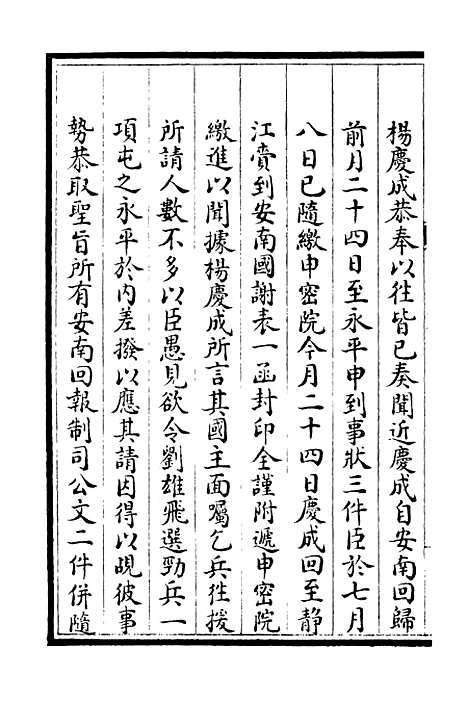 楊慶成恭奉以往皆已奏聞近慶成自安南回歸
前月二十四日至永平申到事狀三件臣於七月
八日已隨繳申密院今月二十四日慶成回至静
江賫到安南國謝表一函封印全謹附遞申密院
繳進以聞據楊慶成所言其國主面囑乞兵徃援
所請人數不多以臣愚見欲令劉雄飛選勁兵一
項屯之永平於内差撥以應其請因得以覘彼事
勢恭取聖旨所有安南回報制司公文二件併隨